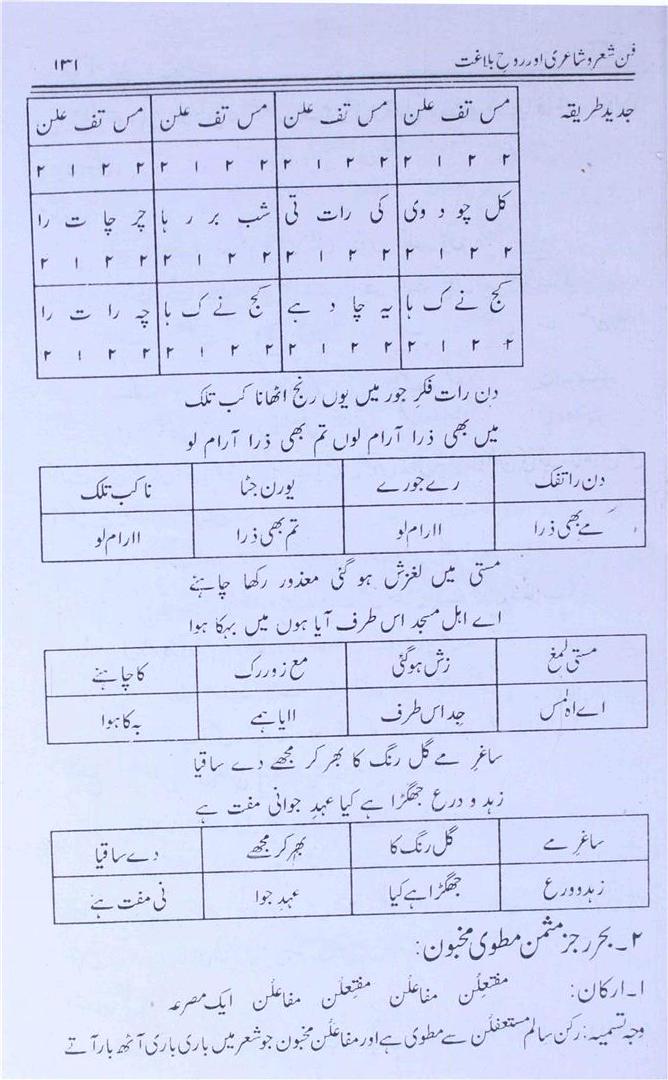 فن شعر و شاعری اور روح بلاغت ۱۳۱
جدید طریقہ
مس تف علن مس تف علن مس تف علن مس تف علن
۲ ۲ ۱ ۲ ۲ ۲ ۱ ۲ ۲ ۲ ۱ ۲ ۲ ۲ ۱ ۲
کل چو د وی کی رات تی شب بر ر ہا چر چا ت را
۲ ۲ ۱ ۲ ۲ ۲ ۱ ۲ ۲ ۲ ۱ ۲ ۲ ۲ ۱ ۲
کج نے ک ہا یہ چا د ہے کج نے ک ہا چہ را ت را
۲ ۲ ۱ ۲ ۲ ۲ ۱ ۲ ۲ ۲ ۱ ۲ ۲ ۲ ۱ ۲
دن رات فکرِ جور میں یوں رنج اٹھانا کب تلک
میں بھی ذرا آرام لوں تم بھی ذرا آرام لو
دن راتفک رے جورے یورن جٹا نا کب تلک
مے بھی ذرا اارام لو تم بھی ذرا اارام لو
مستی میں لغزش ہو گئی معذور رکھا چاہئے
اے اہل مسجد اس طرف آیا ہوں میں بہکا ہوا
مستی لمغ زش ہو گئی مع زور رک کا چاہئے
اے اہ لمس جد اس طرف اایا ہمے بہ کا ہوا
ساغرِ مے گل رنگ کا بھر کر مجھے دے ساقیا
زہد و ورع جھگڑا ہے کیا عہدِ جوانی مفت ہے
ساغرِ مے گل رنگ کا بھر کر مجھے دے ساقیا
زہد و ورع جھگڑا ہے کیا عہدِ جوا نی مفت ہے
۲۔ بحر رجز مثمن مطوی مخبون:
۱۔ ارکان: مفتعِلُن مفاعلُن مفتعِلُن مفاعلُن ایک مصرعہ
وجہ تسمیہ: رکن سالم مستفعلُن سے مطوی ہے اور مفاعلُن مخبون جو شعر میں باری باری آٹھ بار آتے